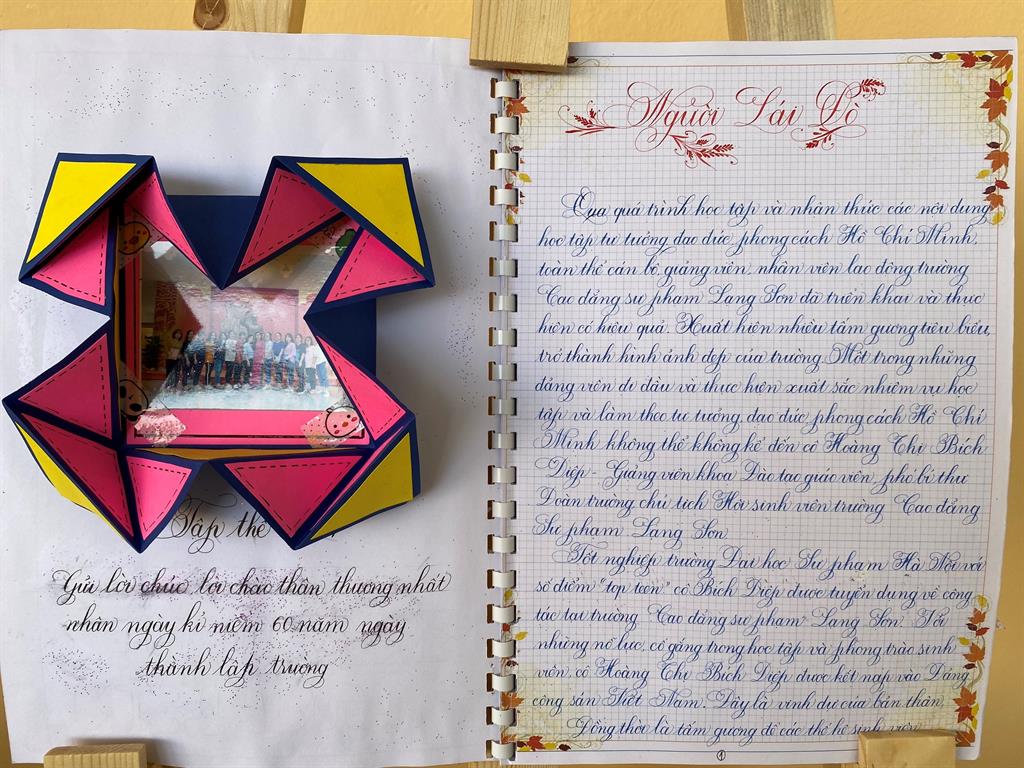 Tập thể
Gửi lời chúc lời chào thân thương nhất
nhân ngày kỉ niệm 60 năm ngày
thành lập trường
Người Lái Đò
Qua quá trình học tập và nhận thức các nội dung
học tập tư tưởng đạo đức, phong cách Hồ Chí Minh,
toàn thể cán bộ, giảng viên, nhân viên lao động trường
Cao đẳng sư phạm Lạng Sơn đã triển khai và thực
hiện có hiệu quả. Xuất hiện nhiều tấm gương tiêu biểu,
trở thành hình ảnh đẹp của trường. Một trong những
đảng viên đi đầu và thực hiện xuất sắc nhiệm vụ học
tập và làm theo tư tưởng, đạo đức, phong cách Hồ Chí
Minh không thể không kể đến cô Hoàng Thị Bích
Diệp - Giảng viên khoa Đào tạo giáo viên, phó bí thư
Đoàn trường chủ tịch Hội sinh viên trường Cao đẳng
Sư phạm Lạng Sơn.
Tốt nghiệp trường Đại học Sư phạm Hà Nội với
số điểm "top ten" cô Bích Diệp được tuyển dụng về công
tác tại trường Cao đẳng sư phạm Lạng Sơn. Với
những nỗ lực, cố gắng trong học tập và phong trào sinh
viên, cô Hoàng Thị Bích Diệp được kết nạp vào Đảng
cộng sản Việt Nam. Đây là vinh dự của bản thân.
Đồng thời là tấm gương để các thế hệ sinh viên
1